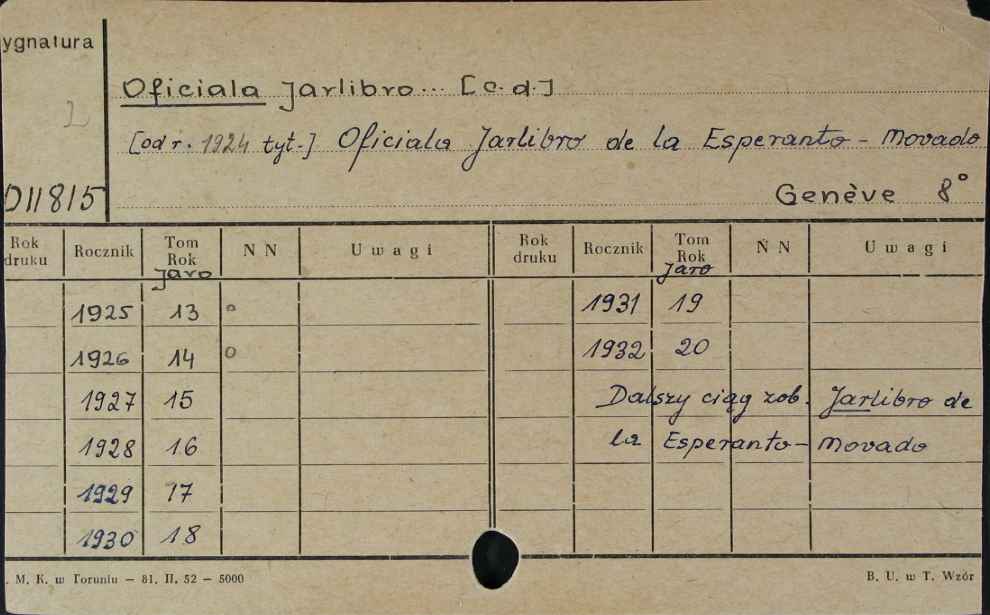 ygnatura
Oficiala Jarlibro... [c.d.]
2
[od r. 1924 tyt.] Oficiala Jarlibro de la Esperanto - Movado
DII815
Genève 8°
Rok druku Rocznik Tom Rok Jaro N N Uwagi Rok druku Rocznik Tom Rok Jaro N N Uwagi
1925 13 o 1931 19
1926 14 o 1932 20
1927 15 Dalszy ciąg zob. Jarlibro de
1928 16 la Esperanto - Movado
1929 17
1930 18
. M. K. w Toruniu — 81. II. 52 — 5000 B. U. w T. Wzór